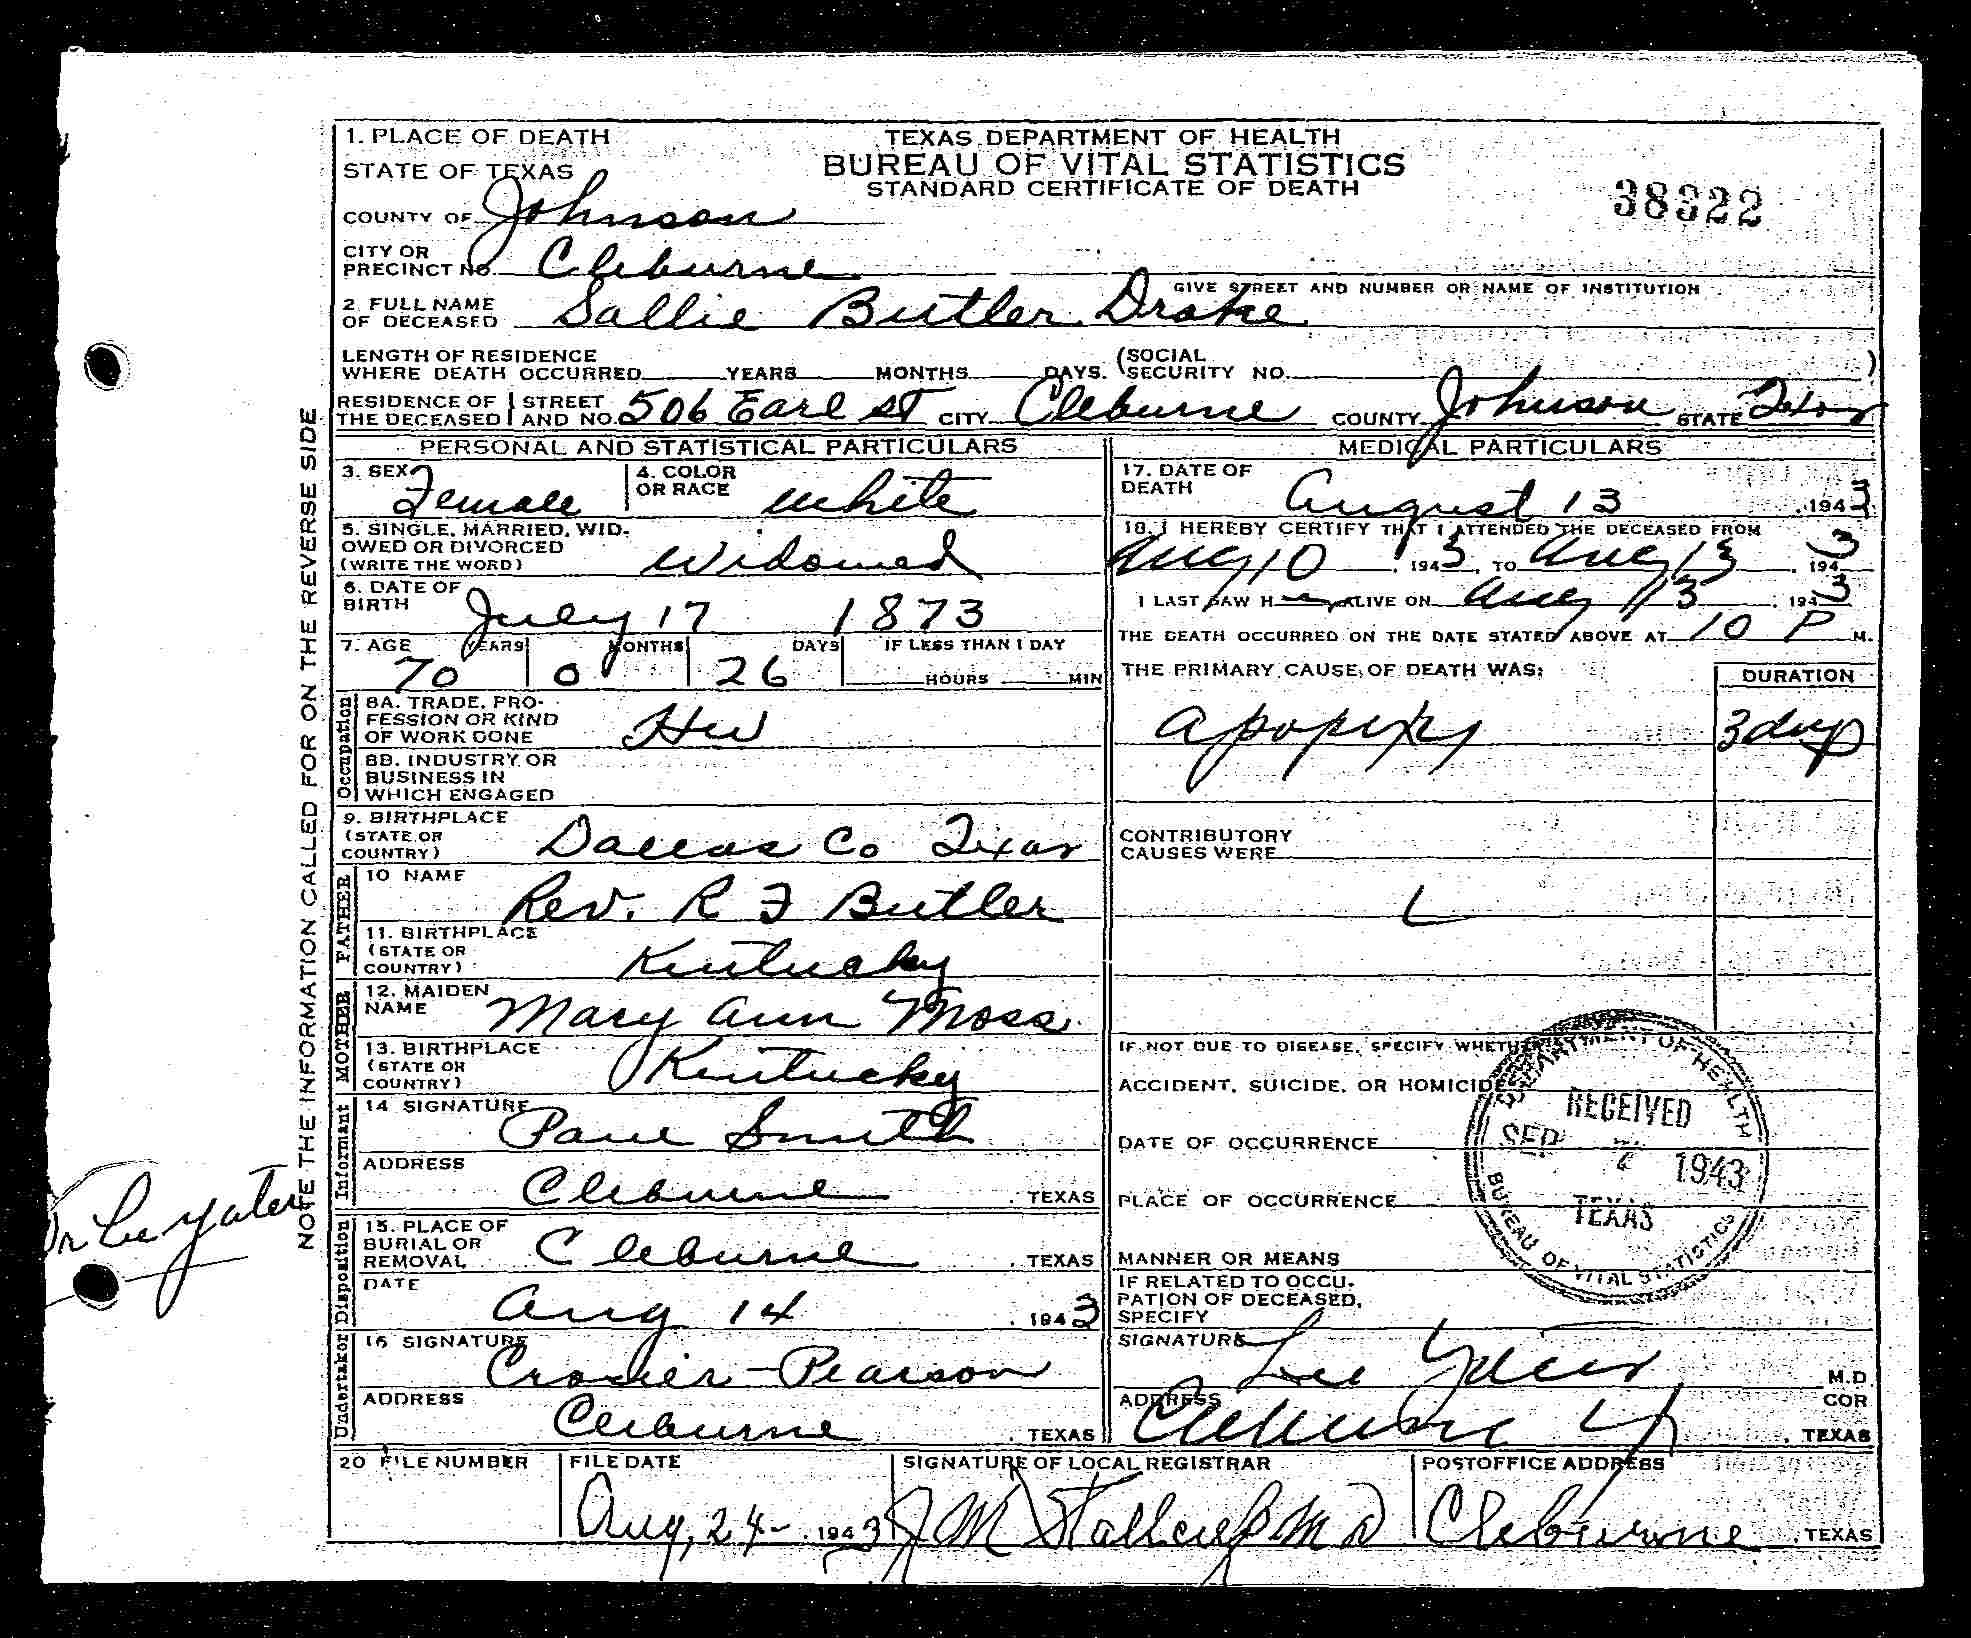 1. PLACE OF DEATH
TEXAS DEPARTMENT OF HEALTH
BUREAU OF VITAL STATISTICS
STANDARD CERTIFICATE OF DEATH
38322
STATE OF TEXAS
COUNTY OF Johnson
CITY OR
PRECINCT NO. Cleburne
GIVE STREET AND NUMBER OR NAME OF INSTITUTION
2. FULL NAME
OF DECEASED Sallie Butler Drake
LENGTH OF RESIDENCE
WHERE DEATH OCCURRED YEARS MONTHS DAYS. (SOCIAL
SECURITY NO. )
RESIDENCE OF THE DECEASED | STREET AND NO. 506 Earl st CITY Cleburne COUNTY Johnson STATE Texas
PERSONAL AND STATISTICAL PARTICULARS
3. SEX Female
4. COLOR
OR RACE white
5. SINGLE, MARRIED, WID-
OWED OR DIVORCED
(WRITE THE WORD) Widowed
6. DATE OF
BIRTH July 17 1873
7. AGE YEARS MONTHS DAYS IF LESS THAN 1 DAY
70 0 26 HOURS MIN
Occupation
8A. TRADE, PRO-
FESSION OR KIND
OF WORK DONE Hw
8B. INDUSTRY OR
BUSINESS IN
WHICH ENGAGED
9. BIRTHPLACE
(STATE OR
COUNTRY) Dallas Co Texas
FATHER
10 NAME Rev. R F Butler
11. BIRTHPLACE
(STATE OR
COUNTRY) Kentucky
MOTHER
12. MAIDEN
NAME Mary Ann Moss
13. BIRTHPLACE
(STATE OR
COUNTRY) Kentucky
Informant
14 SIGNATURE Paul Smith
ADDRESS Cleburne, TEXAS
Disposition
15. PLACE OF
BURIAL OR
REMOVAL Cleburne, TEXAS
DATE Aug 14, 1943
Undertaker
16 SIGNATURE Crosier-Pearson
ADDRESS Cleburne, TEXAS
MEDICAL PARTICULARS
17. DATE OF
DEATH August 13, 1943
18. I HEREBY CERTIFY THAT I ATTENDED THE DECEASED FROM
Aug 10, 1943, TO Aug 13, 1943
I LAST SAW H ALIVE ON Aug 13, 1943
THE DEATH OCCURRED ON THE DATE STATED ABOVE AT 10 P M.
THE PRIMARY CAUSE OF DEATH WAS: DURATION
apoplexy 3 days
CONTRIBUTORY
CAUSES WERE
IF NOT DUE TO DISEASE, SPECIFY WHETHER
ACCIDENT, SUICIDE, OR HOMICIDE
DATE OF OCCURRENCE
PLACE OF OCCURRENCE
MANNER OR MEANS
IF RELATED TO OCCU-
PATION OF DECEASED,
SPECIFY
SIGNATURE Lee Yater M.D
COR
ADDRESS Cleburne, TEXAS
DEPARTMENT OF HEALTH
RECEIVED
SEP 7 1943
TEXAS
BUREAU OF VITAL STATISTICS
20 FILE NUMBER
FILE DATE
Aug, 24-, 1943
SIGNATURE OF LOCAL REGISTRAR
J M Stallcup MD
POSTOFFICE ADDRESS
Cleburne, TEXAS
NOTE THE INFORMATION CALLED FOR ON THE REVERSE SIDE
Dr Lee Yater